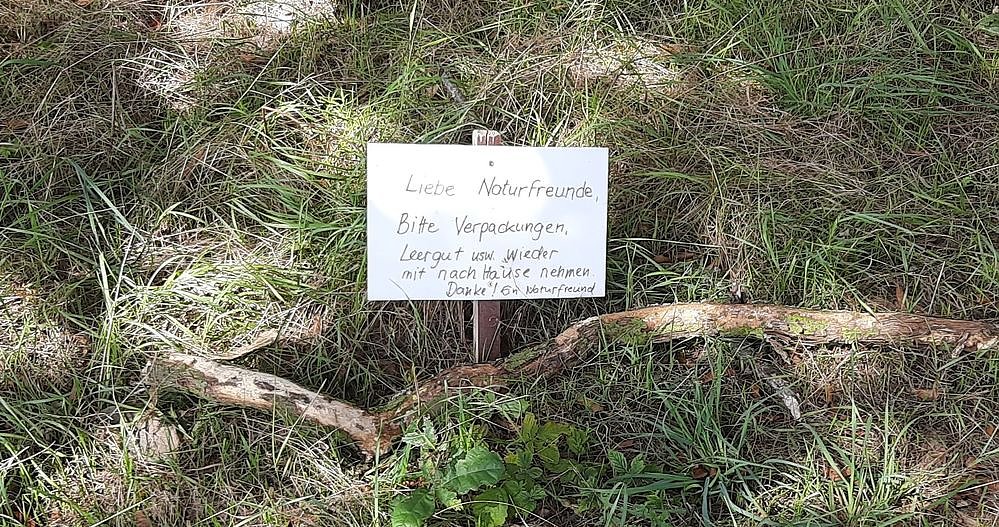 Liebe Naturfreunde,
Bitte Verpackungen,
Leergut usw. wieder
mit nach Hause nehmen.
Danke! Ein Naturfreund